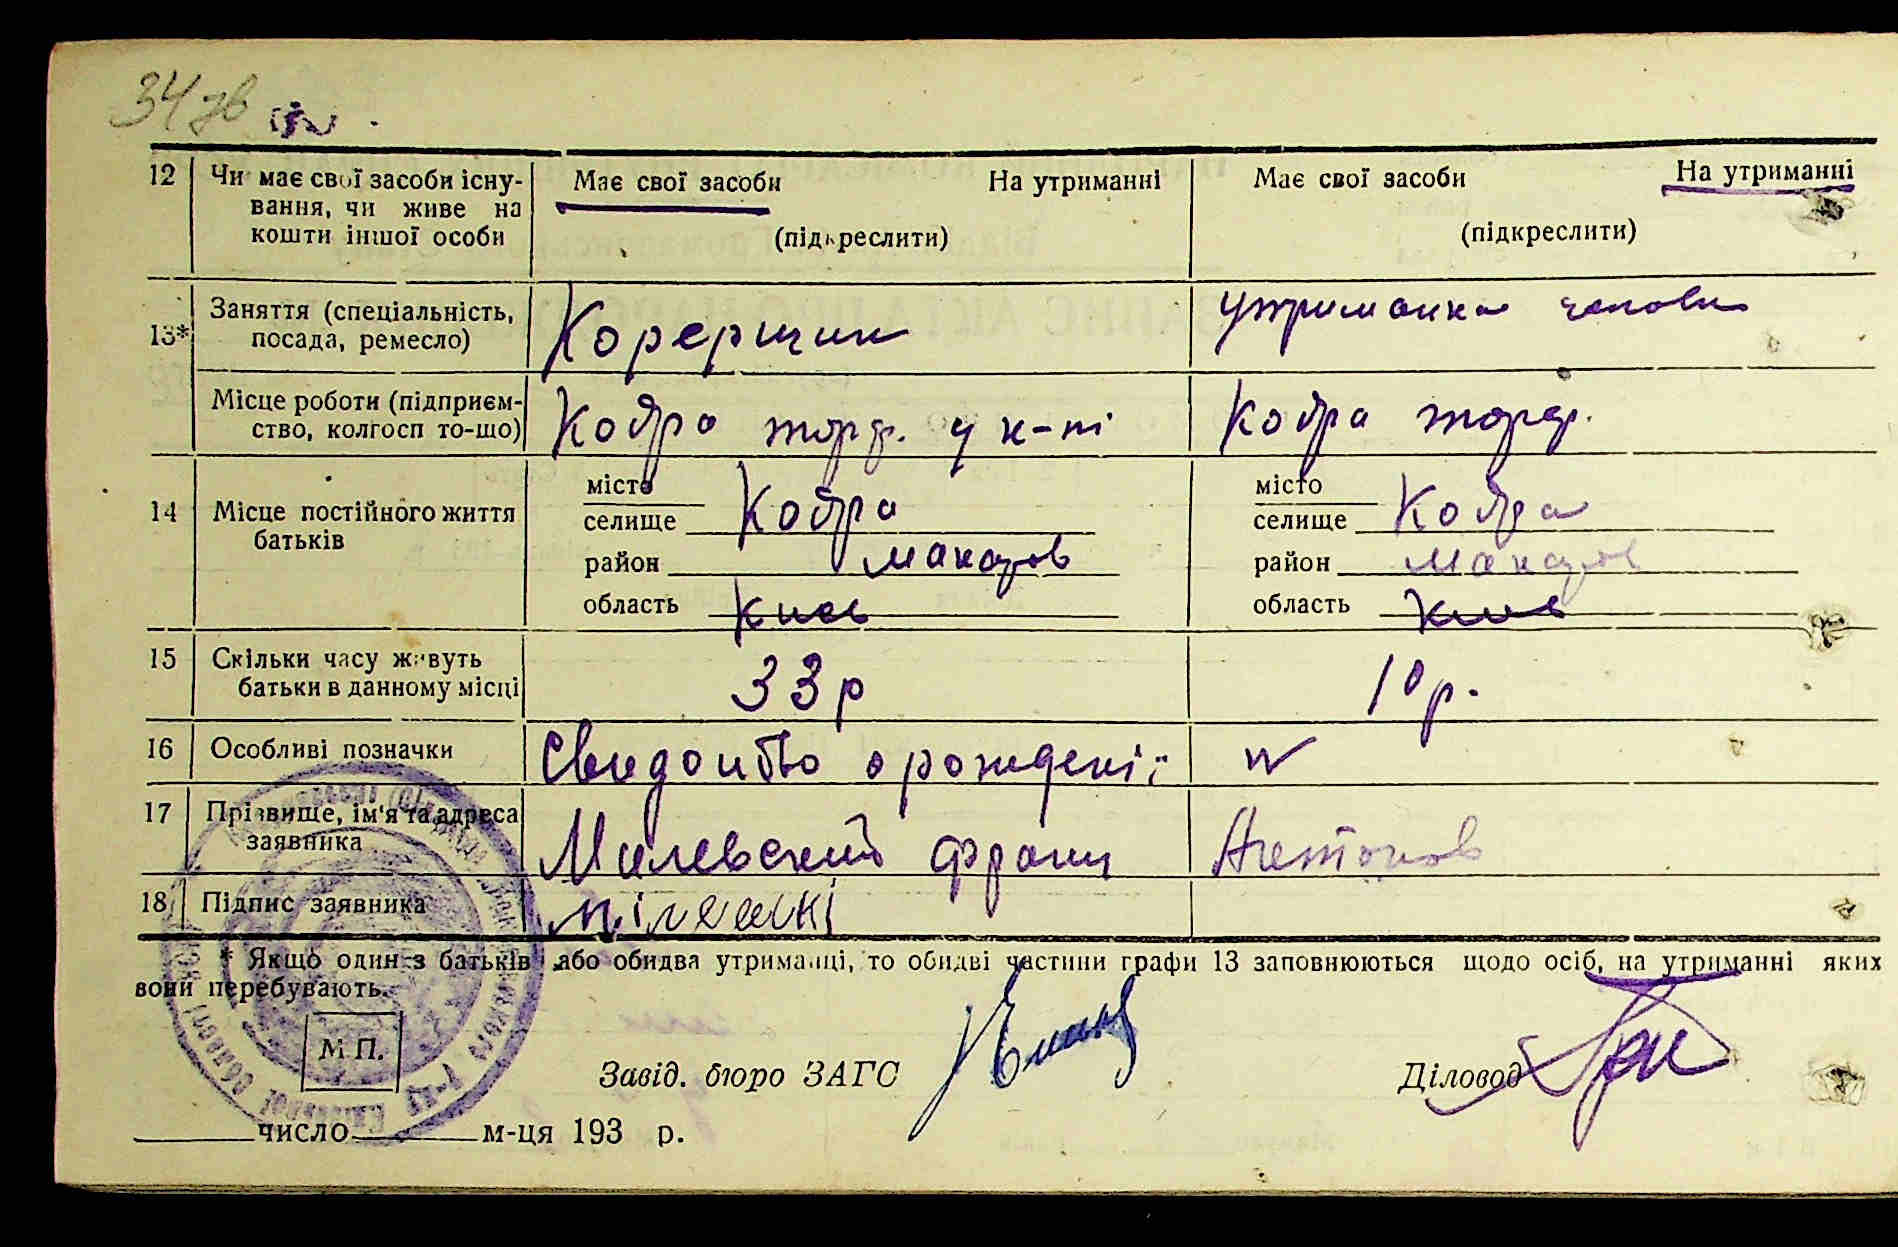 34 зв
12 Чи має свої засоби існу- Має свої засоби На утриманні Має свої засоби На утриманні
вання, чи живе на
кошти іншої особи (підкреслити) (підкреслити)
13* Заняття (спеціальність, утриманка
посада, ремесло)
Місце роботи (підприєм- Кодра торф. у к-ті Кодра торф.
ство, колгосп то-що)
14 Місце постійного життя місто місто
батьків селище Кодра селище Кодра
район Макаров район Макаров
область Київ область Київ
15 Скільки часу живуть 33 р 10 р.
батьки в данному місці
16 Особливі позначки о рождені
17 Прізвище, ім'я та адреса
заявника Милевский Франц Антонов
18 Підпис заявника Мілевскі
* Якщо один з батьків або обидва утриманці, то обидві частини графи 13 заповнюються щодо осіб, на утриманні яких
вони перебувають.
М П.
Завід. бюро ЗАГС Діловод
число м-ця 193 р.